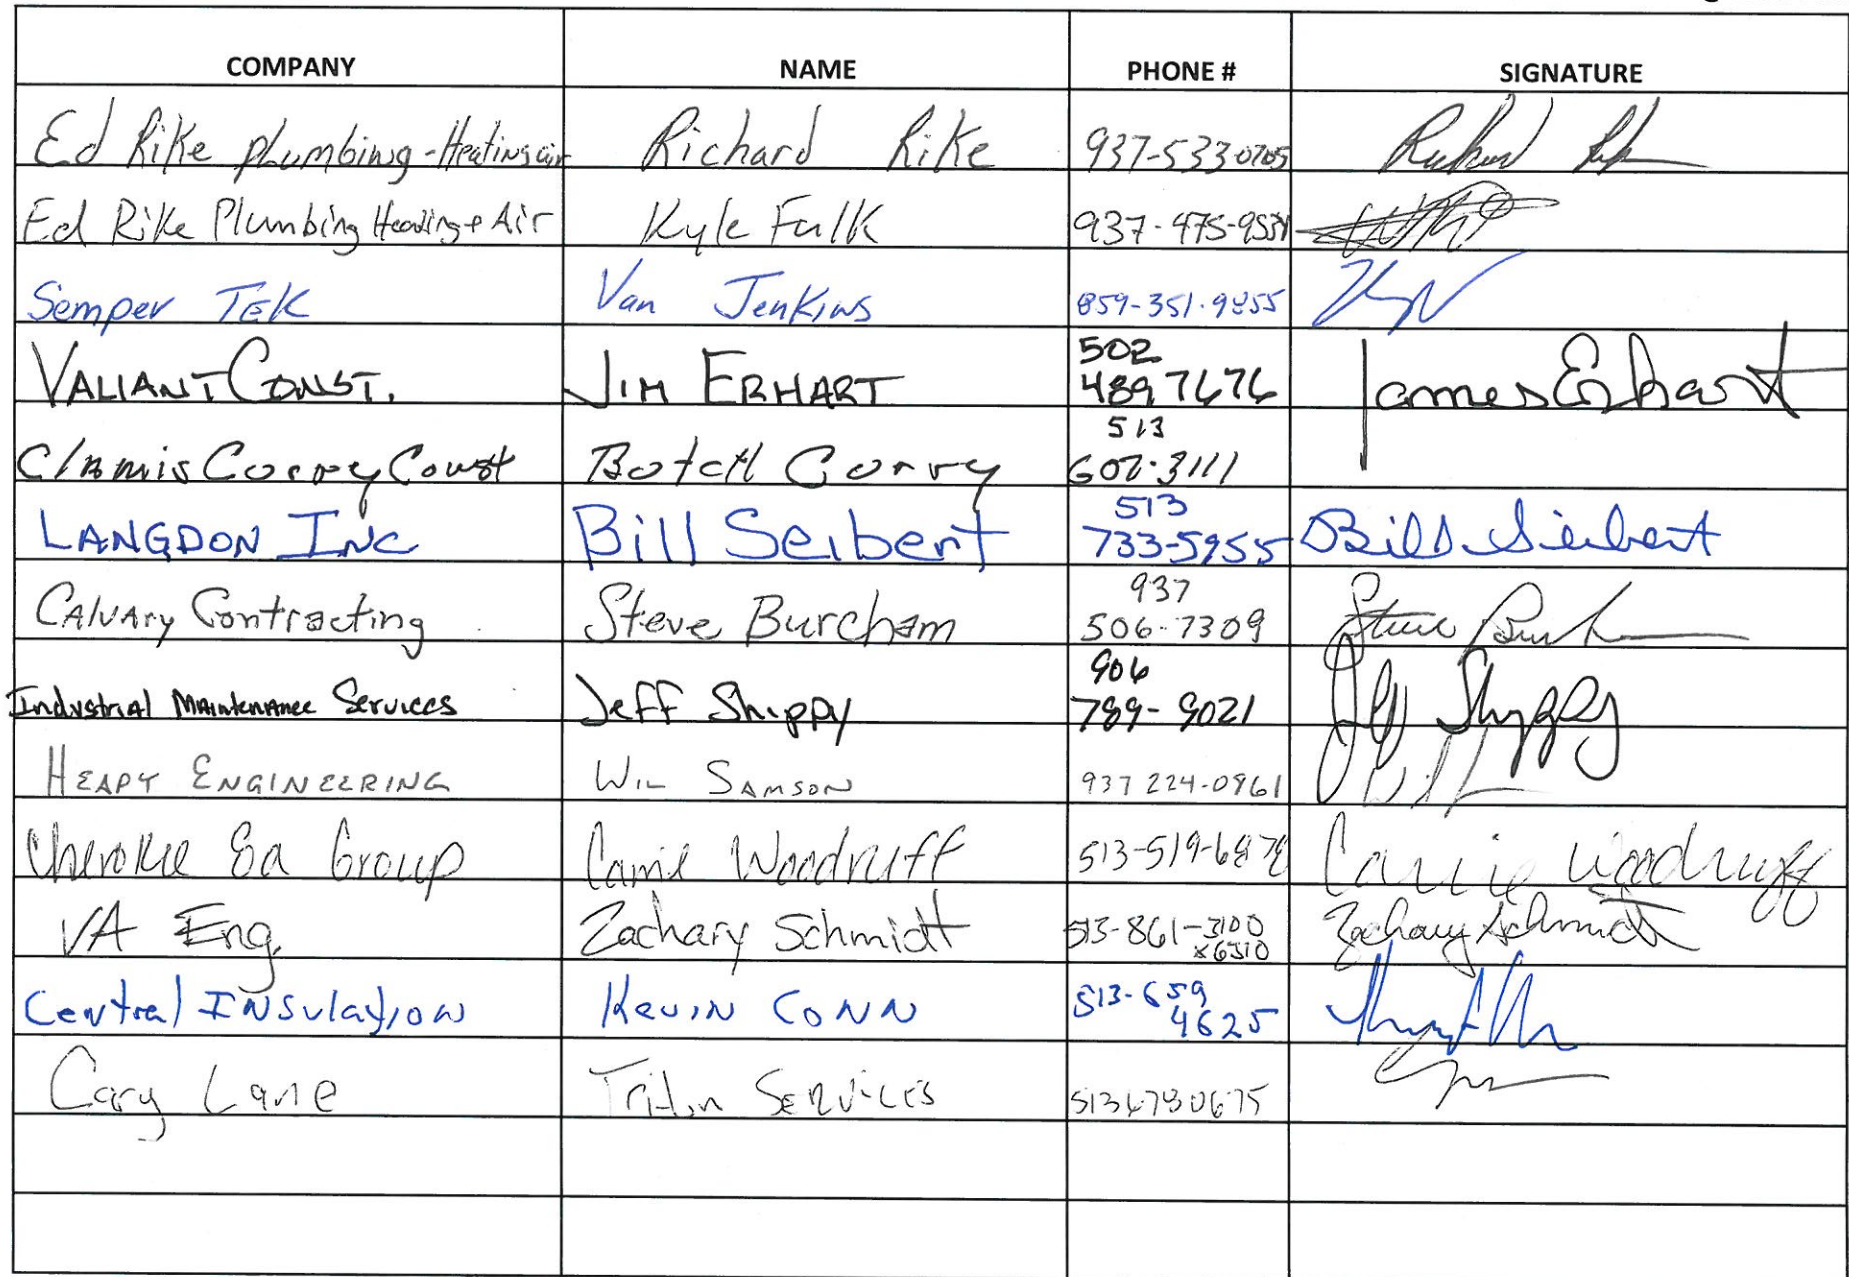 COMPANY NAME PHONE # SIGNATURE
Ed Rike Plumbing-Heating air Richard Rike 937-533 0705
Ed Rike Plumbing Heating + Air Kyle Falk 937-475-
Semper TEK Van Jenkins 859-351-9855
502
VALIANT CONST. JIM ERHART 489 7676 James Erhart
513
Corry Const Butch Corry 602-3111
513
LANGDON INC Bill Seibert 733-5955 Bill Seibert
937
CAlvAry Contracting Steve Burcham 506-7309 Steve
906
Industrial Maintenance Services Jeff Shippy 789-9021 Jeff Shippy
HEAPY ENGINEERING WIL SAMSON 937 224-0861
Cherokee Ga Group Carrie Woodruff 513-519- Carrie Woodruff
VA Eng. Zachary Schmidt 513-861-3100 Zachary Schmidt
x6310
Central INSulation KEVIN CONN 513-659
4625
Cary Lane Triton SERVICES